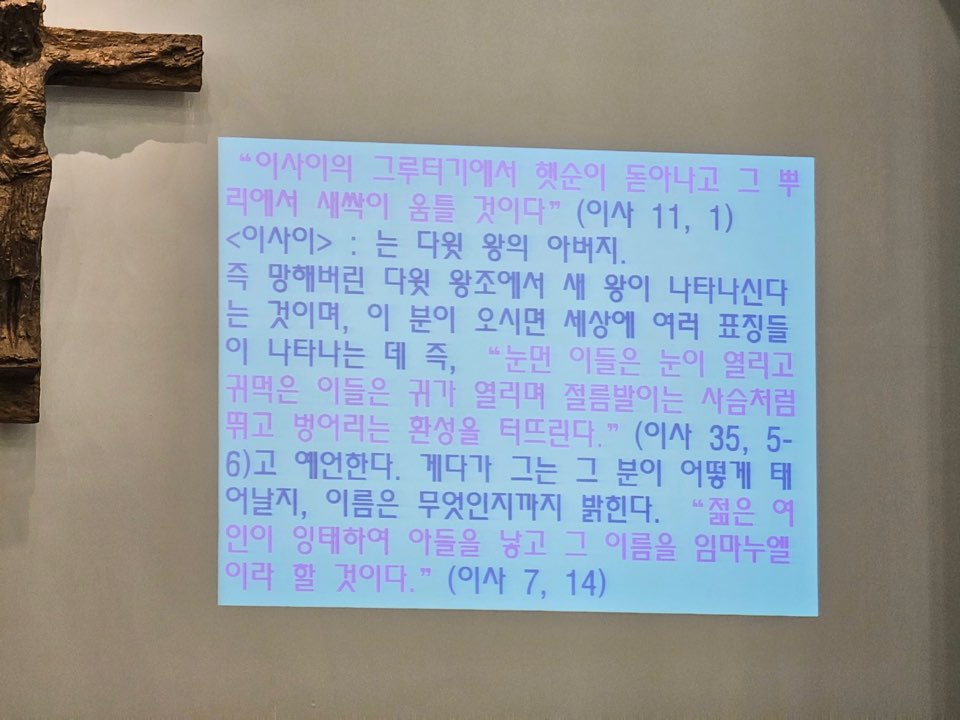 “이사이의 그루터기에서 햇순이 돋아나고 그 뿌
리에서 새싹이 움틀 것이다” (이사 11, 1)
<이사이> : 는 다윗 왕의 아버지.
즉 망해버린 다윗 왕조에서 새 왕이 나타나신다
는 것이며, 이 분이 오시면 세상에 여러 표징들
이 나타나는 데 즉, “눈먼 이들은 눈이 열리고
귀먹은 이들은 귀가 열리며 절름발이는 사슴처럼
뛰고 벙어리는 환성을 터뜨린다.” (이사 35, 5-
6)고 예언한다. 게다가 그는 그 분이 어떻게 태
어날지, 이름은 무엇인지까지 밝힌다. “젊은 여
인이 잉태하여 아들을 낳고 그 이름을 임마누엘
이라 할 것이다.” (이사 7, 14)